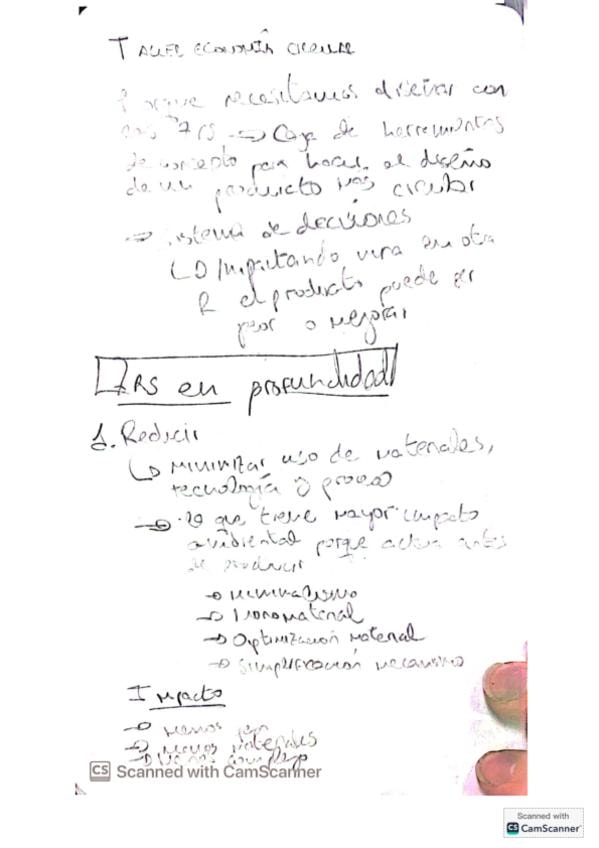 TALLER ECONOMÍA CIRCULAR
Porque necesitamos diseñar con
las 7 RS → Caja de herramientas
de concepto para hacer el diseño
de un producto más circular
→ sistema de decisiones
↳ Impactando una en otra
R el producto puede ser
peor o mejorar
7RS en profundidad
1. Reducir
↳ Minimizar uso de materiales,
tecnología y proceso
→ La que tiene mayor impacto
ambiental porque actua antes
de producir
→ Minimalismo
→ Monomaterial
→ Optimización Material
→ Simplificación mecanismo
Impacto
→ Menos
→ Menos materiales
→
CS Scanned with CamScanner
Scanned with
CS CamScanner